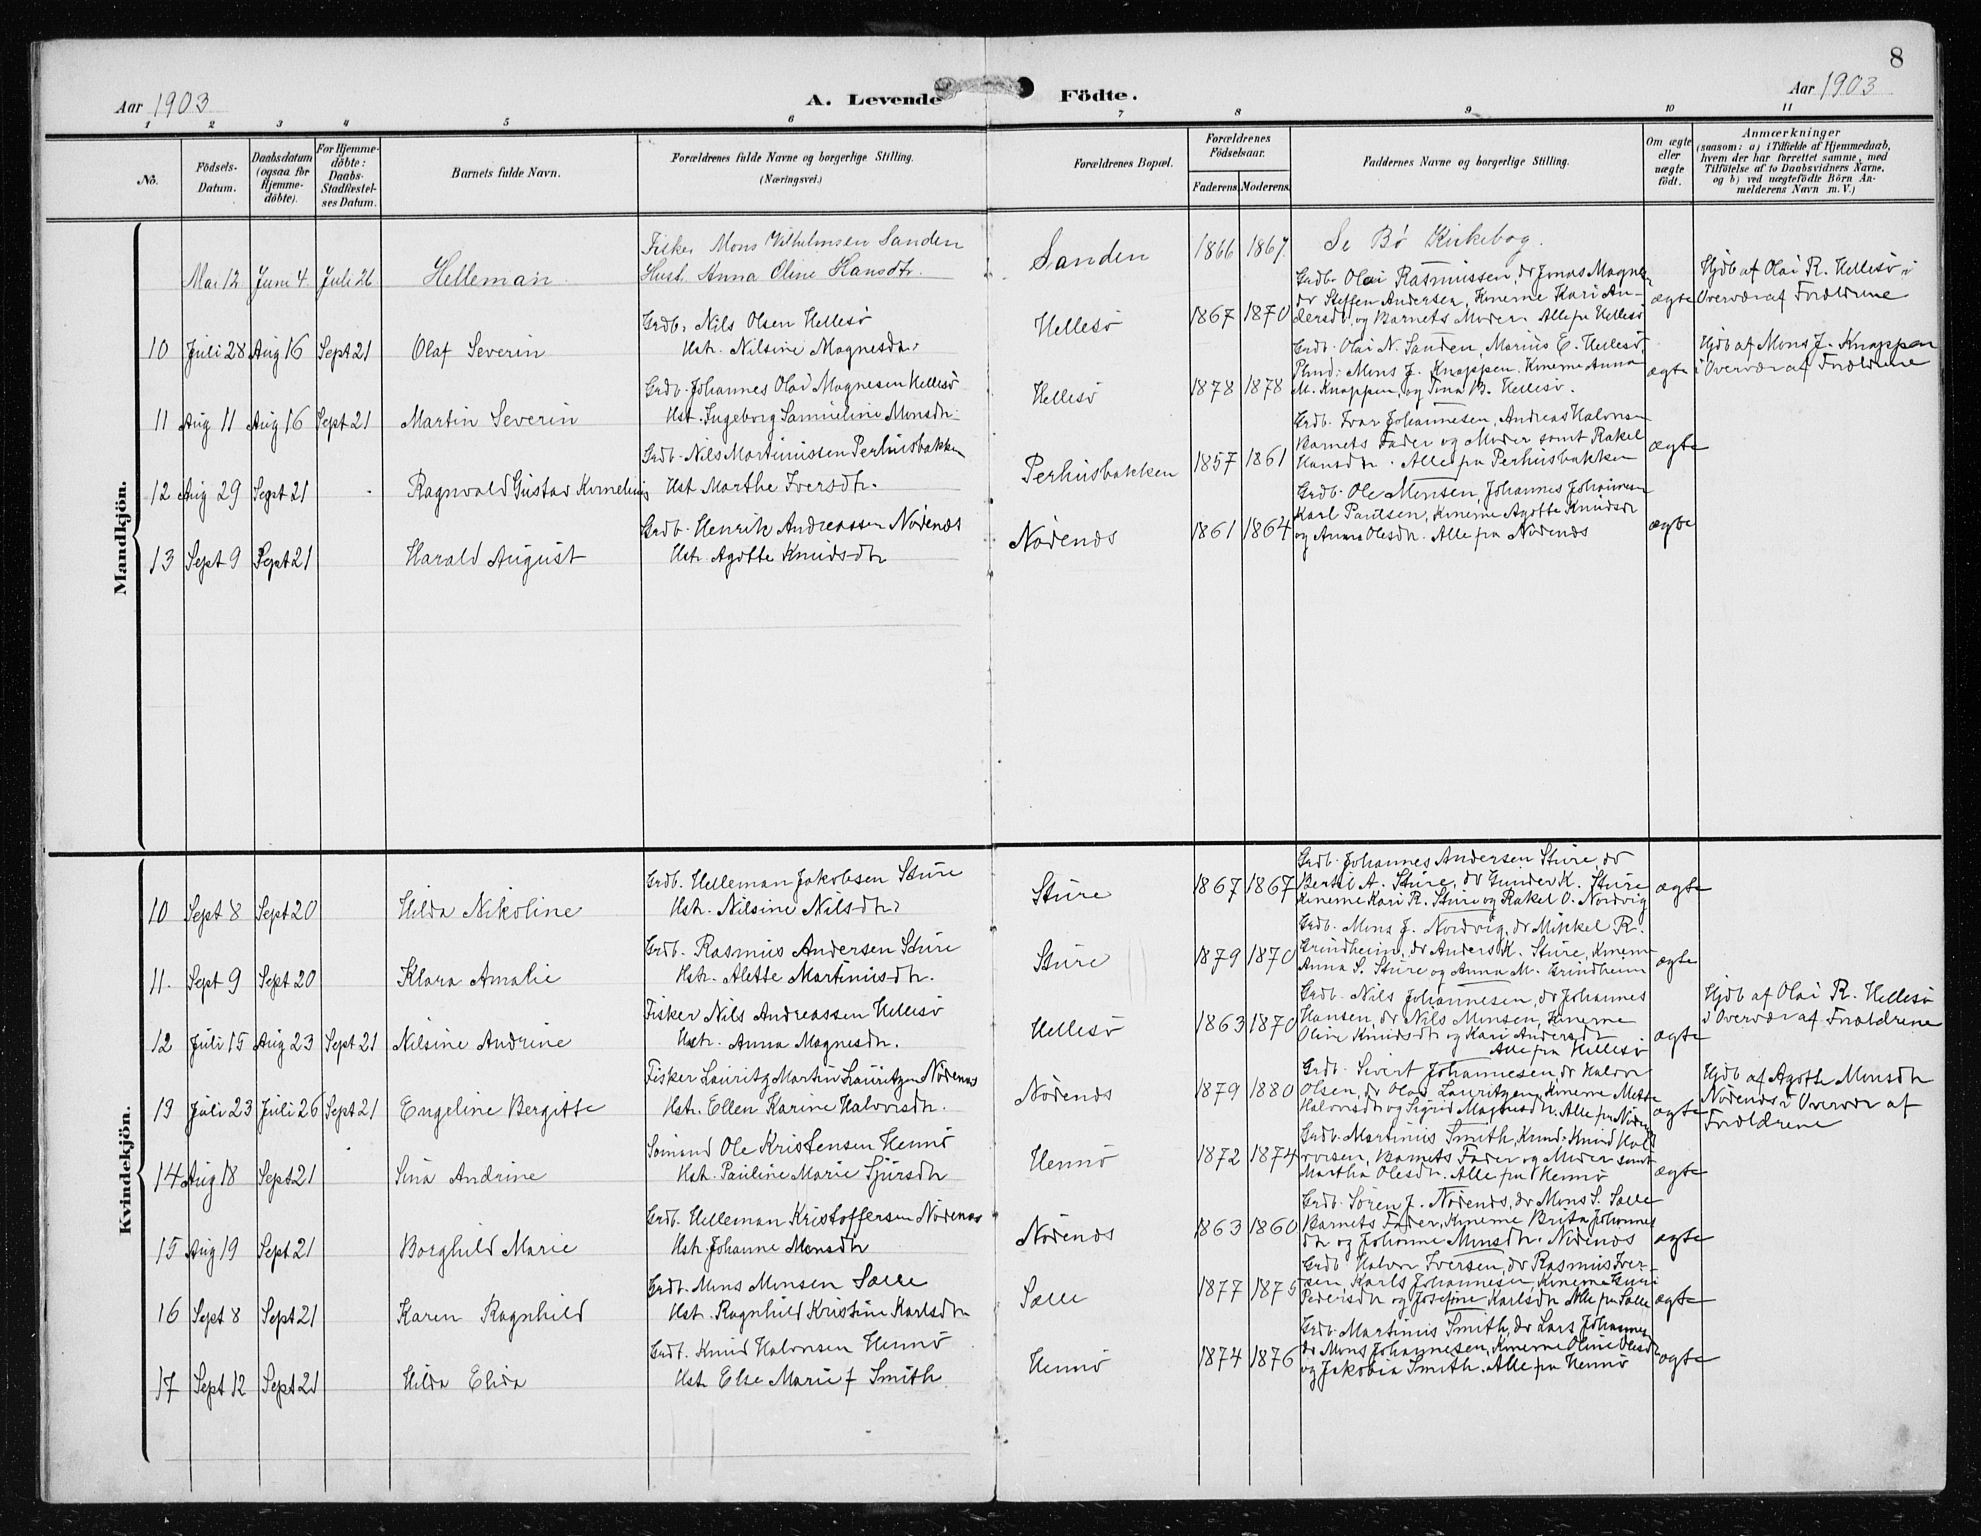 8
Aar 1903
A. Levende Födte.
Aar 1903
1 2 3 4 5 6 7 8 9 10 11
No.
Födsels-Datum.
Daabsdatum (ogsaa for Hjemme-döbte).
For Hjemme-döbte: Daabs-Stadfæstel-ses Datum.
Barnets fulde Navn.
Forældrenes fulde Navne og borgerlige Stilling.
(Næringsvei.)
Forældrenes Bopæl.
Forældrenes Födselsaar.
Faderens. Moderens.
Faddernes Navne og borgerlige Stilling.
Om ægte eller uægte födt.
Anmærkninger
(saasom: a) i Tilfælde af Hjemmedaab,
hvem der har forrettet samme, med
Tilföielse af to Daabsvidners Navne,
og b) ved uægtefödte Börn An-
melderens Navn m. V.)
Mandkjön.
Fisker Mons Vilhelmsen Sanden
Mai 12 Juni 4 Juli 26 Helleman Hust. Anna Oline Hansdtr. Sanden 1866 1867 Se Bø Kirkebog.
Grdb. Nils Olsen Hellesø
10 Juli 28 Aug 16 Sept 21 Olaf Severin Hstr. Nilsine Magnesdtr Hellesø 1867 1870
Grdb. Olai Rasmussen, do Jonas Magnesen
do Steffen Andersen, Konerne Kari An-
dersdtr og Barnets Moder. Alle fra Hellesø
ægte
Hjdb af Olai R. Hellesø i
Overvær af Forældrene
Grdb. Johannes Olai Magnesen Hellesø
11 Aug 11 Aug 16 Sept 21 Martin Severin Hst. Ingeborg Samueline Monsdtr. Hellesø 1878 1878
Grdb. Olai N. Sanden, Marius E. Hellesø,
Mons J. Knappen. Konerne Anna
M. Knappen, og Tina B. Hellesø.
ægte
Hjdb af Mons J. Knappen
i Overvær af Forældrene
Grdb. Nils Martinussen Perhusbakken
12 Aug 29 Sept 21 Ragnvald Gustav Kornelius Hst Marthe Iversdtr. Perhusbakken 1857 1861
Grdb. Ivar Johannesen, Andreas Halvorsen
Barnets Fader og Moder samt Rakel
Hansdtr. Alle fra Perhusbakken
ægte
Grdb. Henrik Andreassen Nødenæs
13 Sept 9 Sept 21 Harald August Hstr. Agotte Knudsdtr Nødenæs 1861 1864
Grdb. Ole Monsen, Johannes Johannesen
Karl Paulsen, Konerne Agotte Knudsdtr
og Anna Olesdtr. Alle fra Nødenæs
ægte
Kvindekjön.
Grdb. Helleman Jakobsen Sture
10 Sept 8 Sept 20 Hilda Nikoline Hstr. Nilsine Nilsdtr Sture 1867 1867
Grdb. Johannes Andersen Sture, do
Bertel A. Sture, do Gunder K. Sture
Konerne Kari R. Sture og Rakel O. Nordvig
ægte
Grdb. Rasmus Andersen Sture
11. Sept 9 Sept 20 Klara Amalie Hstr. Alette Martinusdtr. Sture 1879 1870
Grdb. Mons J. Nordvig, do Mikkel R.
Grindheim, do Anders K. Sture, Konerne
Anna S. Sture og Anna M. Grindheim
ægte
Fisker Nils Andreassen Hellesø
12 Juli 15 Aug 23 Sept 21 Nilsine Andrine Hstr. Anna Magnesdtr. Hellesø 1863 1870
Grdb. Nils Johannesen, do Johannes
Hansen, do Nils Monsen, Konerne
Oline Knudsdtr og Kari Andersdtr
Alle fra Hellesø
ægte
Hjdb af Olai R. Hellesø
i Overvær af Forældrene
Fisker Lauritz Martin Lauritzen Nødenæs
13 Juli 23 Juli 26 Sept 21 Engeline Bergitte Hstr. Ellen Karine Halvorsdtr. Nødenæs 1879 1880
Grdb. Sivert Johannesen, do Halvor
Olsen, do Olai Lauritzen, Konerne Mette
Halvorsdtr og Sigrid Magnusdtr. Alle fra Nødenæs
ægte
Hjdb af Agotte Monsdtr
Nødenæs i Overvær af
Forældrene
Sømand Ole Kristensen Hennø
14 Aug 18 Sept 21 Sina Andrine Hstr. Pauline Marie Sjursdtr Hennø 1872 1874
Grdb. Martinus Smith, Knud Hal-
vorsen, Barnets Fader og Moder samt
Martha Olesdtr. Alle fra Hennø
ægte
Grdb. Helleman Kristoffersen Nødenæs
15 Aug 19 Sept 21 Borghild Marie Hstr. Johanne Monsdtr Nødenæs 1863 1860
Grdb. Søren J. Nødenæs, do Mons S. Sælle
Barnets Fader, Konerne Brita Johannes
dtr og Johanne Monsdtr. Nødenæs
ægte
Grdb. Mons Monsen Sælle
16 Sept 8 Sept 21 Karen Ragnhild Hst. Ragnhild Kristine Karlsdtr Sælle 1877 1875
Grdb Halvor Iversen, do Rasmus Iver-
sen, Karls Johannesen, Konerne Guri
Pedersdtr og Josefine Karlsdtr Alle fra Sælle
ægte
Grdb. Knud Halvorsen Hennø
17 Sept 12 Sept 21 Hilda Elida Hstr Else Marie f Smith Hennø 1874 1876
Grdb. Martinus Smith, do Lars Johannes
do Mons Johannesen, Konerne Oline Olesdtr
og Jakobia Smith. Alle fra Hennø
ægte